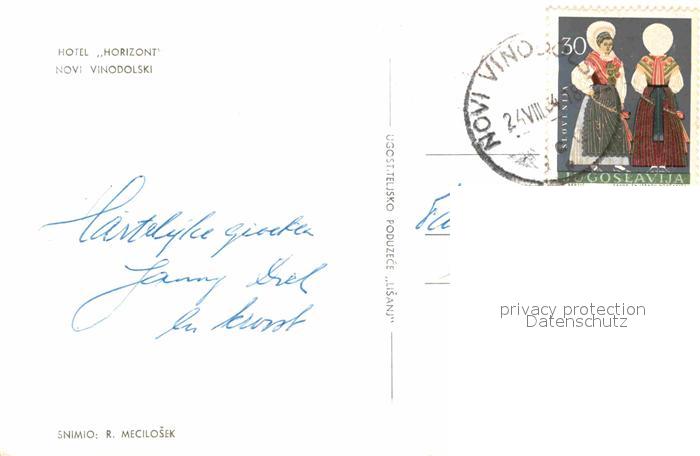 HOTEL ,,HORIZONT"
NOVI VINODOLSKI
NOVI VINO
24 VIII 64
30
SLOVENIJA
JUGOSLAVIJA
UGOSTITELJSKO PODUZEĆE ,,LIŠANJ"
Hartelijke groeten
Fa
en kroost
privacy protection
Datenschutz
SNIMIO: R. MECILOŠEK